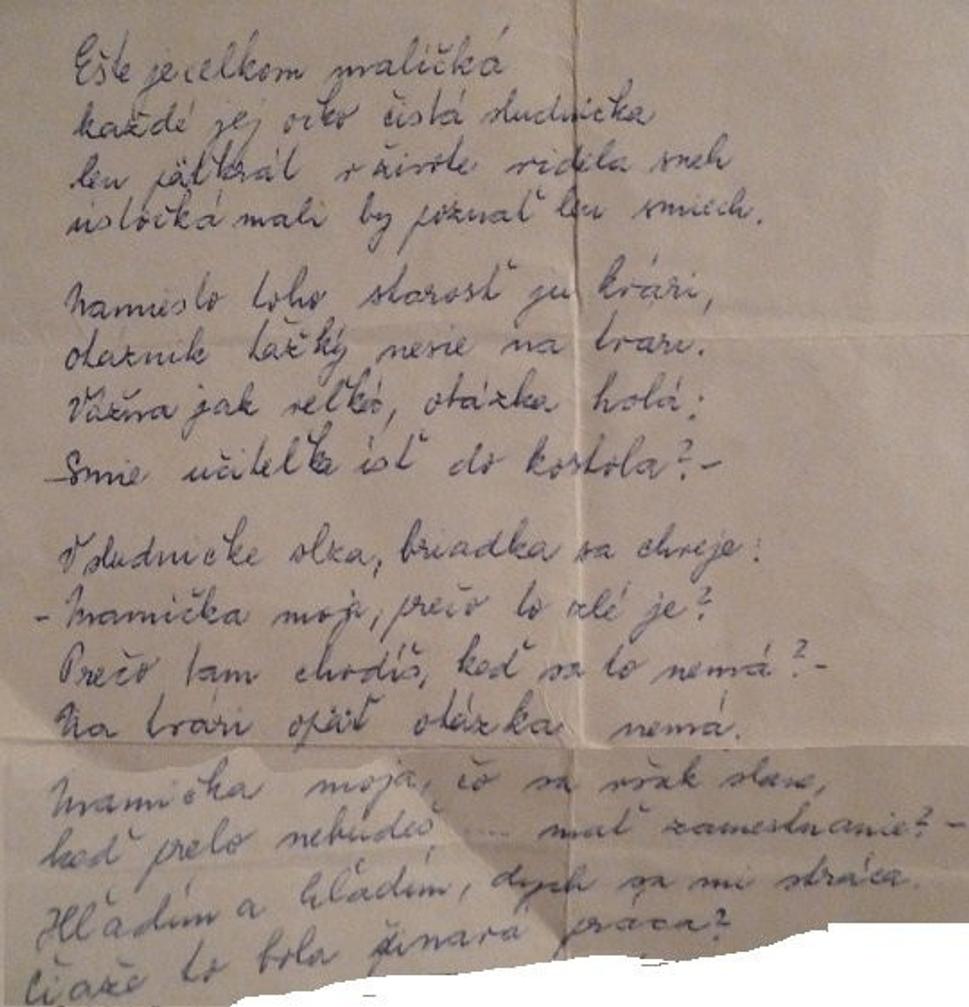 Ešte je celkom maličká
každé jej očko čistá studnička
len päťkrát v živote videla sneh
ústočká mali by poznať len smiech.
Namiesto toho starosť ju kvári,
otáznik ťažký nesie na tvári.
Vážna jak veľká, otázka holá:
-Smie učiteľka ísť do kostola?-
V studničke slza, briadka sa chveje:
- Mamička moja, prečo to zlé je?
Prečo tam chodíš, keď sa to nemá?-
Na tvári opäť otázka nemá.
Mamička moja, čo sa však stane,
keď preto nebudeš .... mať zamestnanie?-
Hľadím a hľadím, dych sa mi stráca.
Čiaže to bola práca?